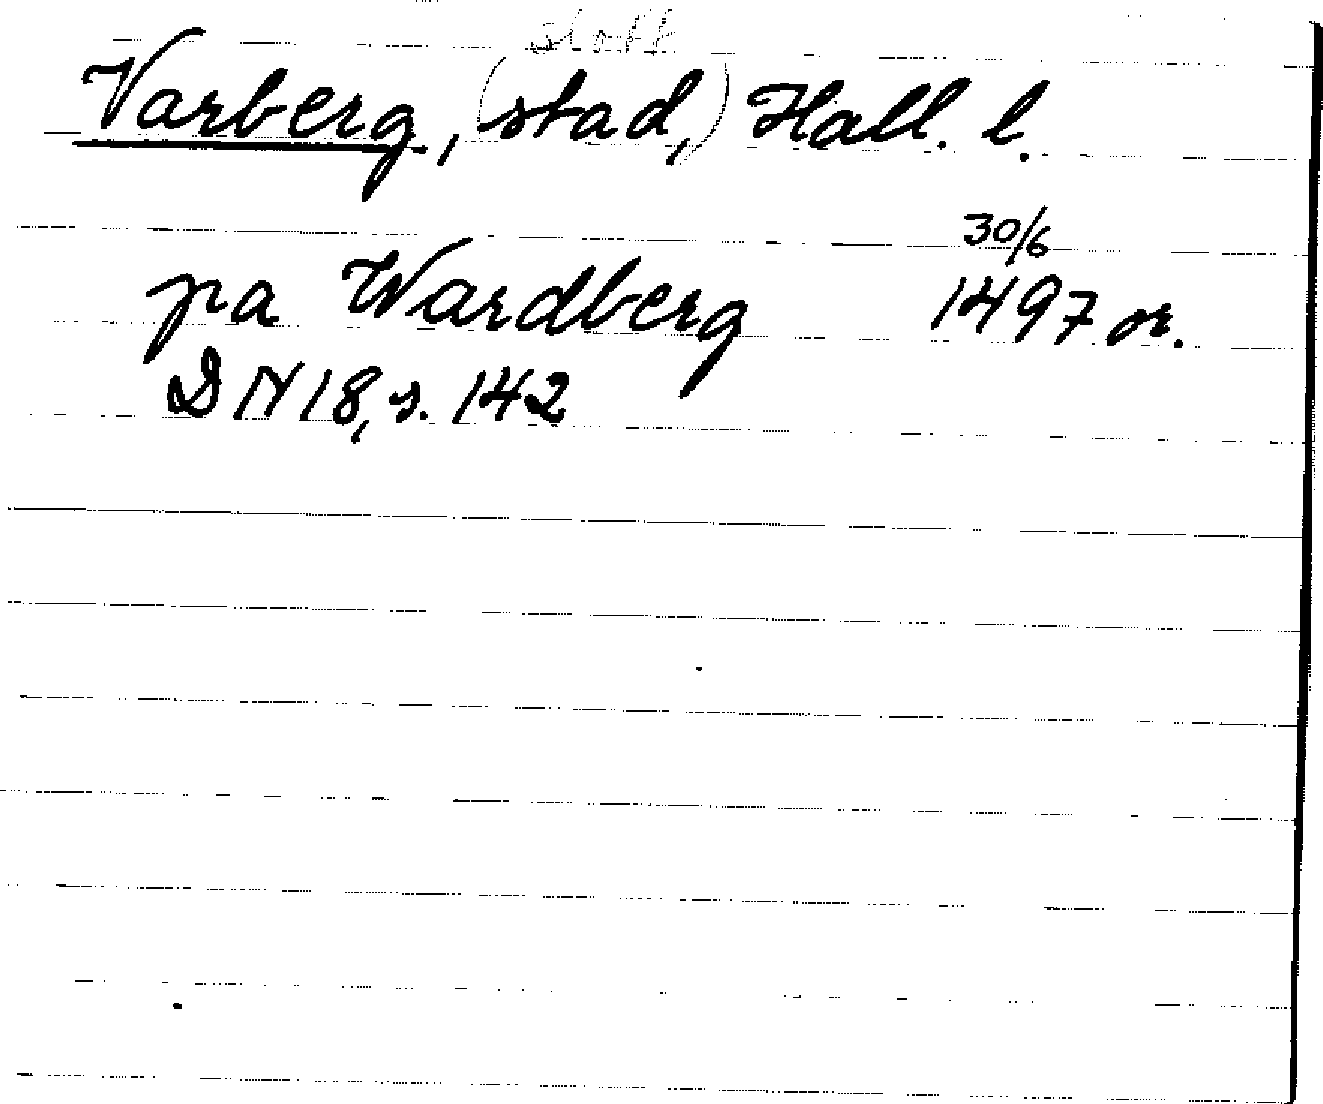 slott
Varberg, (stad,) Hall. l.
30/6
pa Wardberg 1497 or.
DN 18, s. 142